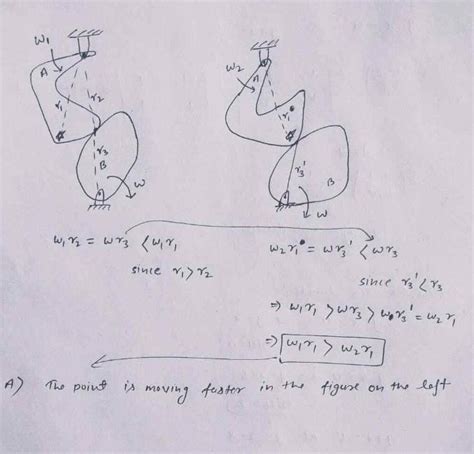 ω₁
A
r₁
r₂
r₃
B
ω
ω₂
A
r₁
r₃'
B
ω
ω₁r₂ = ωr₃ < ω₁r₁
since r₁ > r₂
ω₂r₁ = ωr₃' < ωr₃
since r₃' < r₃
⇒ ω₁r₁ > ωr₃ > ωr₃' = ω₂r₁
⇒ ω₁r₁ > ω₂r₁
A) The point is moving faster in the figure on the left